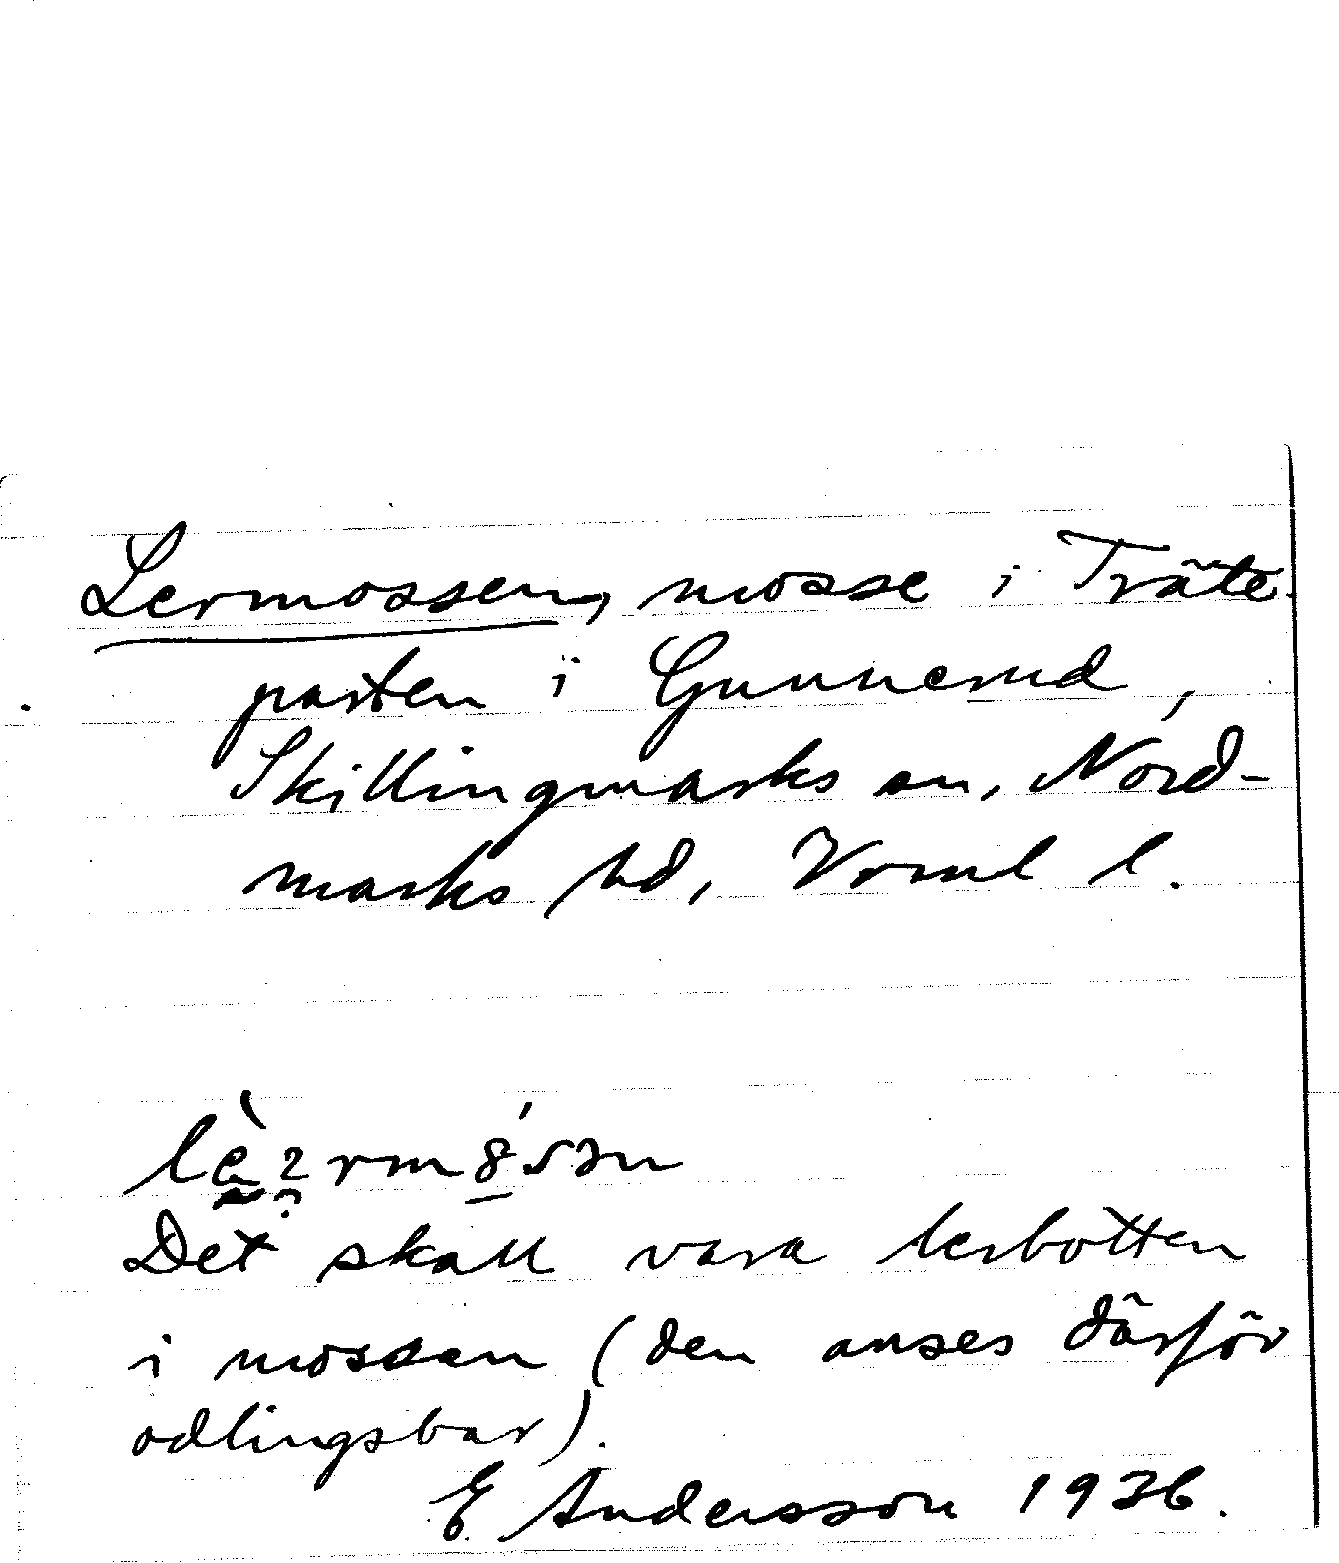 Lermossen, mosse i Träte-
parten i Gunnerud,
Skillingmarks sn, Nord-
marks hd, Vrml l.
Det skall vara lerbotten
i mossen (den anses därför
odlingsbar).
E Andersson 1936.